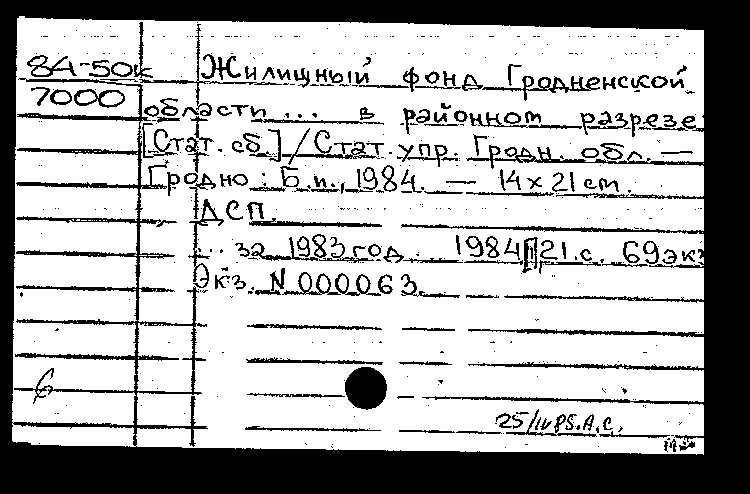 84-50к Жилищный фонд Гродненской
7000 области ... в районном разрезе
[Стат. сб.] / Стат. упр. Гродн. обл. —
Гродно : Б.и., 1984. — 14 х 21 см.
ДСП.
... за 1983 год. 1984. 21 с. 69 экз
Экз. N 000063.
6
25/IV 85. А.С.